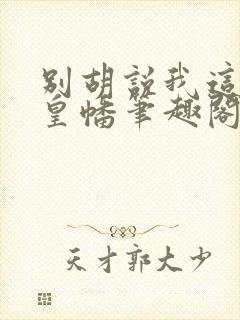 別胡說我這
皇幡筆趣閣
天才郭大少